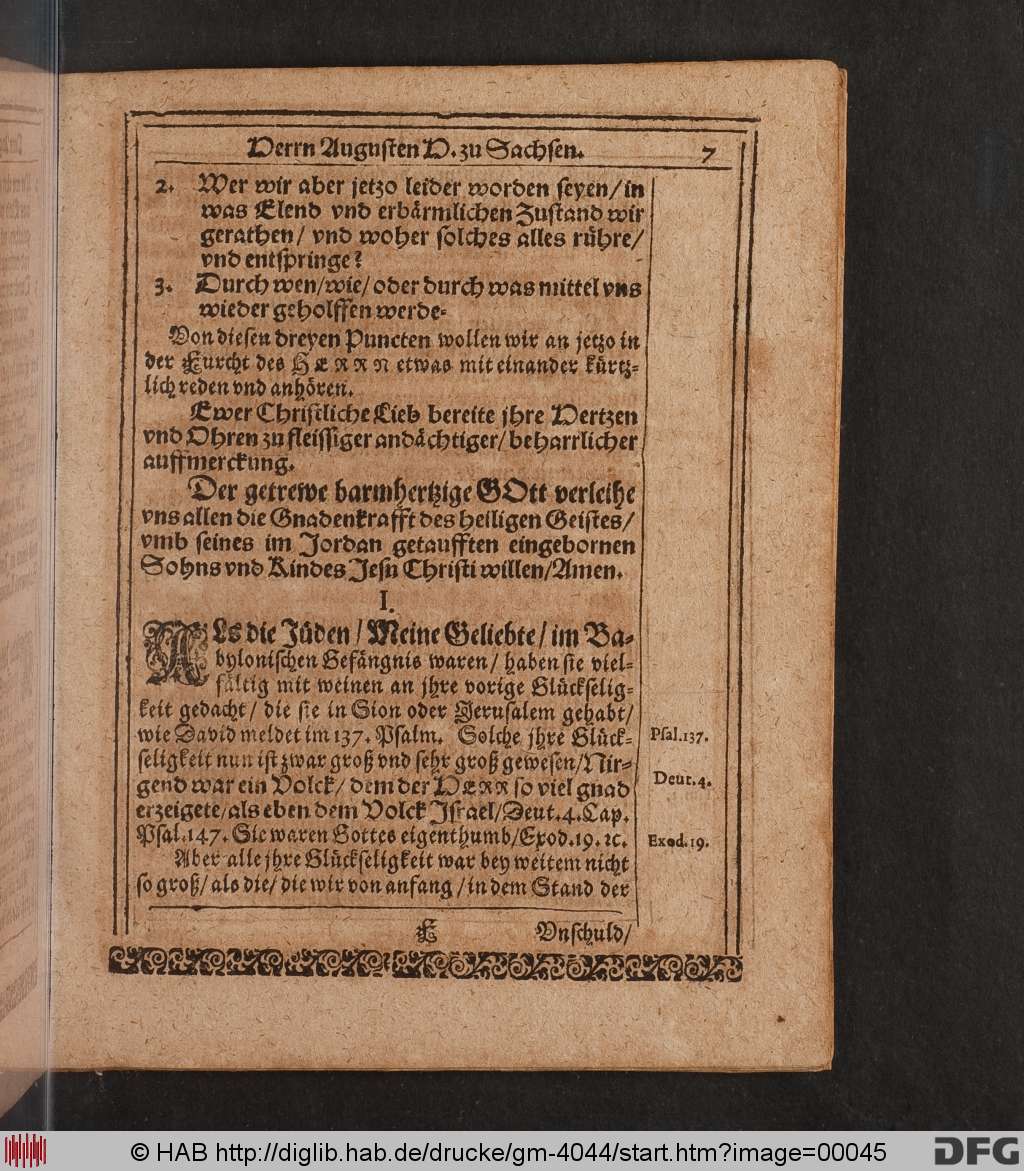 Herrn Augusten H. zu Sachsen. 7
2. Wer wir aber jetzo leider worden seyen/in
was Elend vnd erbärmlichen Zustand wir
gerathen/ vnd woher solches alles rühre/
vnd entspringe?
3. Durch wen/wie/oder durch was mittel vns
wieder geholffen werde.
Von diesen dreyen Puncten wollen wir an jetzo in
der Furcht des HERRN etwas mit einander kürtz-
lich reden vnd anhören.
Ewer Christliche Lieb bereite jhre Hertzen
vnd Ohren zu fleissiger andächtiger/ beharrlicher
auffmerckung.
Der getrewe barmhertzige GOtt verleihe
vns allen die Gnadenkrafft des heiligen Geistes/
vmb seines im Jordan getaufften eingebornen
Sohns vnd Kindes Jesu Christi willen/Amen.
I.
ALs die Jüden/ Meine Geliebte/ im Ba-
bylonischen Gefängnis waren/ haben sie viel-
fältig mit weinen an jhre vorige Glückselig-
keit gedacht/ die sie in Sion oder Jerusalem gehabt/
wie David meldet im 137. Psalm. Solche jhre Glück-
seligkeit nun ist zwar groß vnd sehr groß gewesen/Nir-
gend war ein Volck/ dem der HERR so viel gnad
erzeigete/als eben dem Volck Israel/Deut.4.Cap.
Psal.147. Sie waren Gottes eigenthumb/Exod.19. ꝛc.
Aber alle jhre Glückseligkeit war bey weitem nicht
so groß/ als die/ die wir von anfang/ in dem Stand der
Psal.137.
Deut.4.
Exod.19.
E Vnschuld/
© HAB http://diglib.hab.de/drucke/gm-4044/start.htm?image=00045
DFG